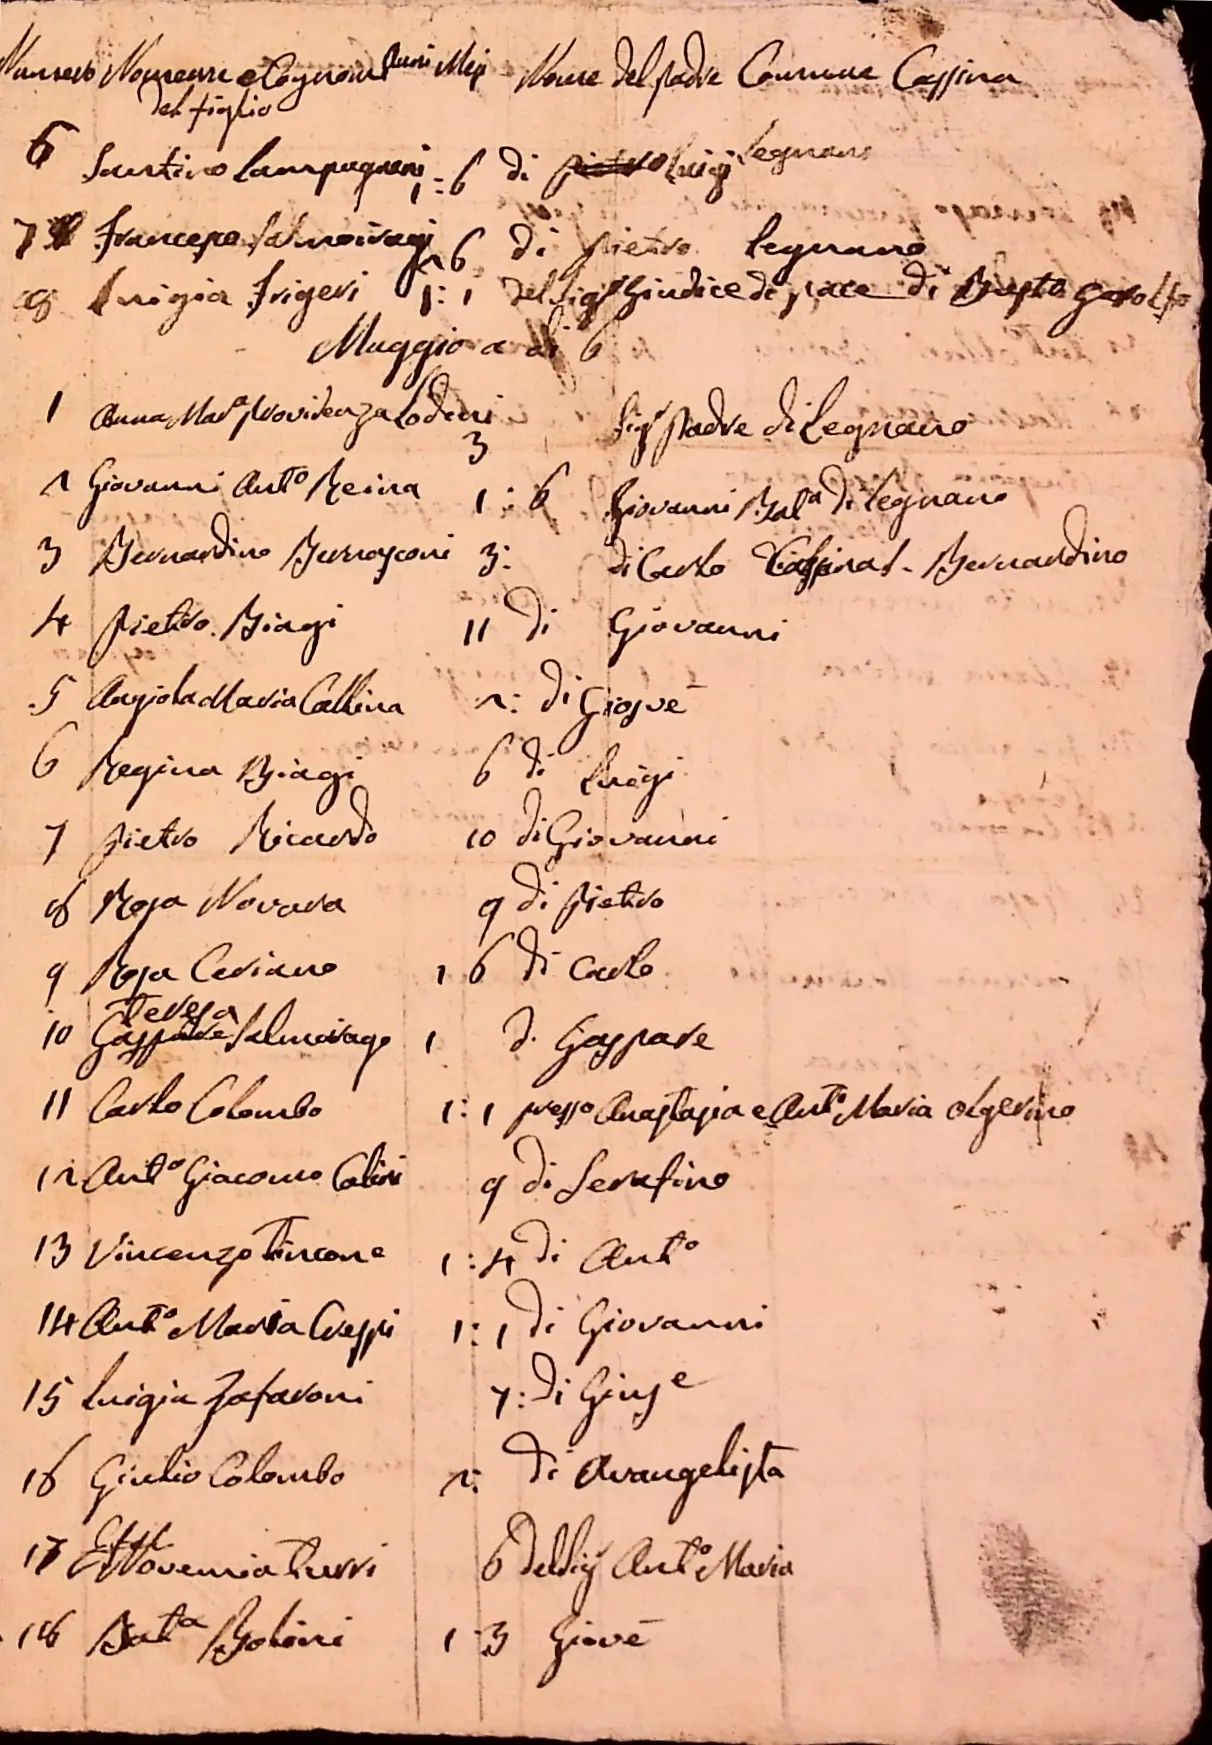 Numero Nome e Cognome Anni Mesi Nome del padre Comune Cassina
del figlio
6 Santino Lampugnani 1:6 di Luigi Legnano
7 Francesco Salmoiragi 6 di Pietro Legnano
8 Luigia Frigeri 1:1 del Sig.r Giudice di pace di Busto Garolfo
Maggio a di 6
1 Anna Mar.a Providenza Lodini 3 Sig.r Padre di Legnano
2 Giovanni Ant.o Reina 1:6 Giovanni Bat.a di Legnano
3 Bernardino Bernasconi 3: di Carlo Cassina S. Bernardino
4 Pietro Biagi 11 di Giovanni
5 Angiola Maria Callina 2: di Giosuè
6 Regina Biagi 6 di Luigi
7 Pietro Ricardo 10 di Giovanni
8 Rosa Novara 9 di Pietro
9 Rosa Ceriano 1 6 di Carlo
Teresa
10 Gaspare Salmoirago 1 di Gaspare
11 Carlo Colombo 1:1 presso Anastasia e Ant.o Maria
12 Ant.o Giacomo Calini 9 di Serafino
13 Vincenzo Tincone 1:4 di Ant.o
14 Ant.o Maria Crespi 1:1 di Giovanni
15 Luigia Zafaroni 7: di Gius.e
16 Giulio Colombo 2: di Avangelista
17 Turri 6 del Sig.r Ant.o Maria
18 Bat.a Bolini 1:3 Giovē